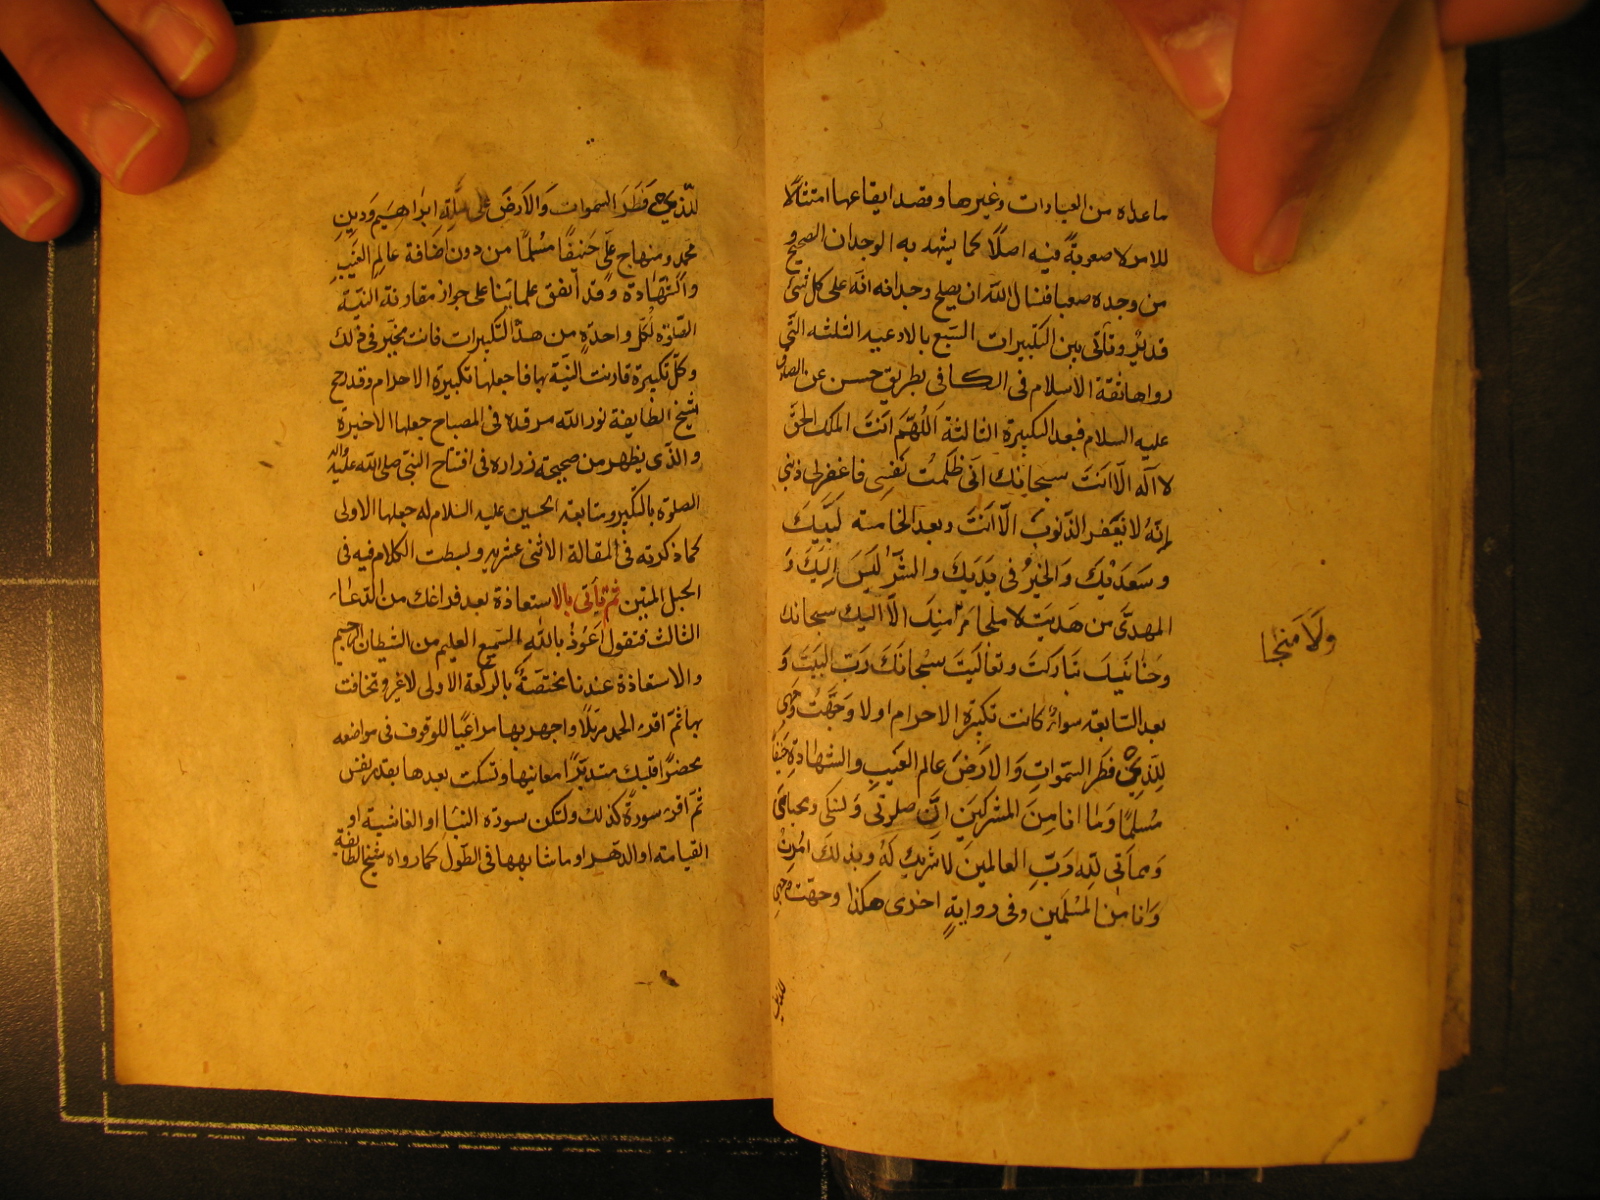 ما عداه من العبادات وغيرها وقصد ايقاعها امتثالا
للامر لا صعوبة فيه اصلا كما يشهد به الوجدان الصحيح و
من وجده صعبا فنسال الله ان يصلح وجدانه انه على كل شئ
قدير وتأتى بين التكبيرات السبع بالادعيه الثلثه التى
رواها ثقة الاسلام فى الكافى بطريق حسن عن الصادق
عليه السلام فبعد التكبيرة الثالثة اللهم انت الملك الحق
لا اله الا انت سبحانك انى ظلمت نفسى فاغفر لى ذنبى
انه لا يغفر الذنوب الا انت وبعد الخامسه لبيك
وسعديك والخير فى يديك والشر ليس اليك و
المهدى من هديت لا ملجا منك الا اليك سبحانك
وحنانيك تباركت وتعاليت سبحانك رب البيت و
بعد السابعه سواء كانت تكبيرة الاحرام اولا وجهت وجهى
للذى فطر السموات والارض عالم الغيب والشهادة حنيفا
مسلما وما انا من المشركين ان صلوتى ونسكى ومحياى
ومماتى لله رب العالمين لا شريك له وبذلك امرت
وانا من المسلمين وفى رواية اخرى هكذا وجهت وجهى
ولا منجا
للذى
للذى فطر السموات والارض على ملة ابراهيم ودين
محمد ومنهاج على حنيفا مسلما من دون اضافة عالم الغيب
والشهادة وقد اتفق علمائنا على جواز مقارنة النية
الصلوة لكل واحدة من هذه التكبيرات فانت مخير فى ذلك
وكل تكبيرة قارنت النية بها فاجعلها تكبيرة الاحرام وقد رجح
شيخ الطايفة نور الله مرقده فى المصباح جعلها الاخيرة
والذى يظهر من صحيحة زراره فى افتتاح النبى صلى الله عليه واله
الصلوة بالتكبير ومتابعة الحسين عليه السلام له جعلها الاولى
كما ذكرته فى المقالة الاثنى عشريه وبسطت الكلام فيه فى
الحبل المتين ثم تأتى بالاستعاذة بعد فراغك من الدعاء
الثالث فتقول اعوذ بالله السميع العليم من الشيطان الرجيم
والاستعاذة عندنا مختصة بالركعة الاولى لا غير وتخافت
بها ثم اقرء الحمد مرتلا واجهر بها مراعيا للوقوف فى مواضعه
محضرا قلبك متدبرا معانيها وتسكت بعدها بقدر نفس
ثم اقرء سورة كذلك ولتكن سورة النبا او الغاشية او
القيامه او الدهر او ما شابهها فى الطول كما رواه شيخ الطائفة